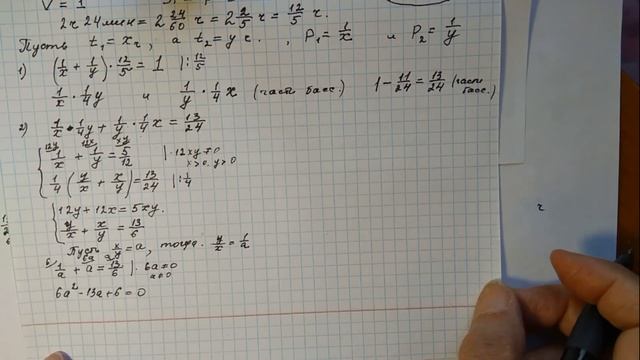 V = 1
2ч 24 мин = 2 24/60 ч = 2 2/5 ч = 12/5 ч.
Пусть t₁ = x ч, а t₂ = y ч., P₁ = 1/x и P₂ = 1/y
1) (1/x + 1/y) · 12/5 = 1 |: 12/5
1/x · 1/4 y и 1/y · 1/4 x (части басс.) 1 - 11/24 = 13/24 (части басс.)
2) 1/x · 1/4 y + 1/y · 1/4 x = 13/24
12y 12x xy
{ 1/x + 1/y = 5/12 | · 12xy ≠ 0 x > 0, y > 0
1/4 (y/x + x/y) = 13/24 |: 1/4
{ 12y + 12x = 5xy.
y/x + x/y = 13/6
Пусть x/y = a, тогда. y/x = 1/a
6 6a a
1/a + a = 13/6 | · 6a ≠ 0 a ≠ 0
6a² - 13a + 6 = 0